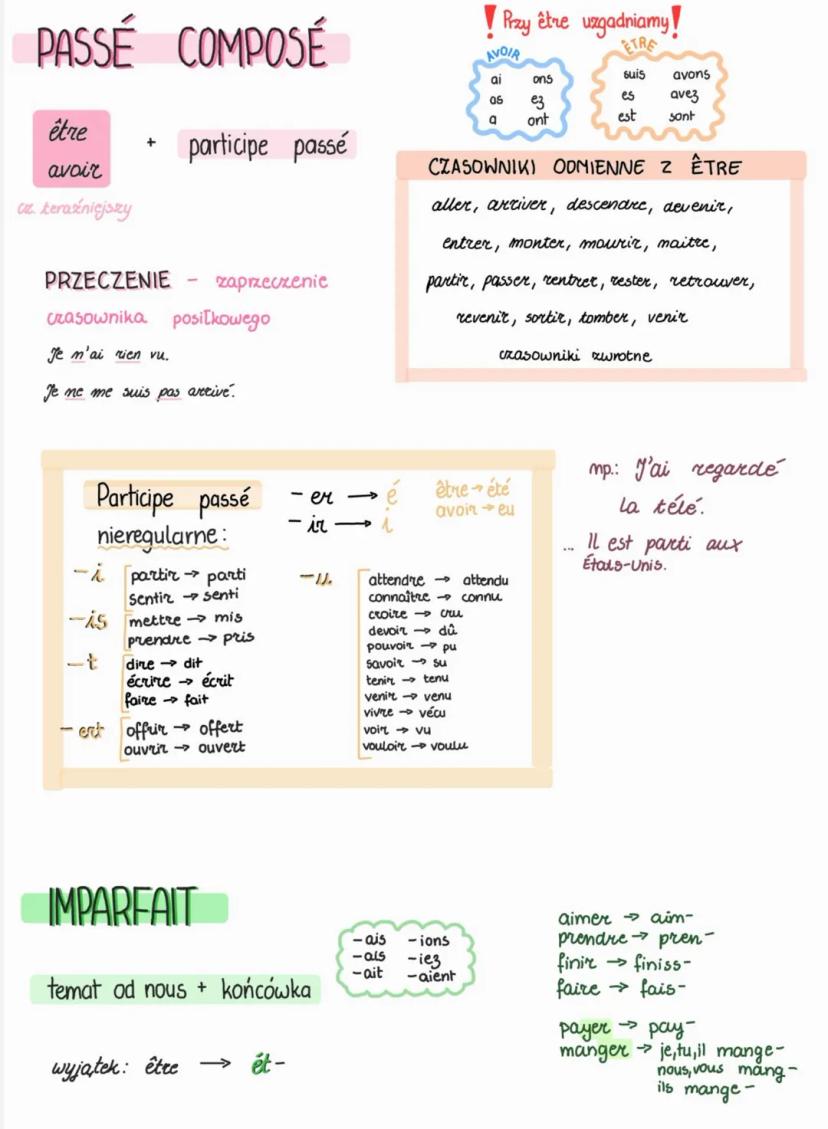 PASSÉ COMPOSÉ
! Przy être uzgadniamy!
AVOIR
ai ons
as ez
a ont
ÊTRE
suis avons
es avez
est sont
être
avoir
+ participe passé
cz. teraźniejszy
CZASOWNIKI ODMIENNE Z ÊTRE
aller, arriver, descendre, devenir,
entrer, monter, mourir, maitre,
partir, passer, rentrer, rester, retrouver,
revenir, sortir, tomber, venir
czasowniki zwrotne
PRZECZENIE - zaprzeczenie
czasownika posiłkowego
Je m'ai rien vu.
Je ne me suis pas arrivé.
Participe passé
nieregularne:
- er → é
- ir → i
être → été
avoir → eu
-i
partir → parti
sentir → senti
-is
mettre → mis
prendre → pris
-t
dire → dit
écrire → écrit
faire → fait
- ert
offrir → offert
ouvrir → ouvert
-u
attendre → attendu
connaître → connu
croire → cru
devoir → dû
pouvoir → pu
savoir → su
tenir → tenu
venir → venu
vivre → vécu
voir → vu
vouloir → voulu
mp.: J'ai regardé
la télé.
... Il est parti aux
États-Unis.
IMPARFAIT
temat od nous + końcówka
-ais -ions
-ais -iez
-ait -aient
wyjątek: être → ét-
aimer → aim-
prendre → pren-
finir → finiss-
faire → fais-
payer → pay-
manger → je,tu,il mange-
nous,vous mang-
ils mange-